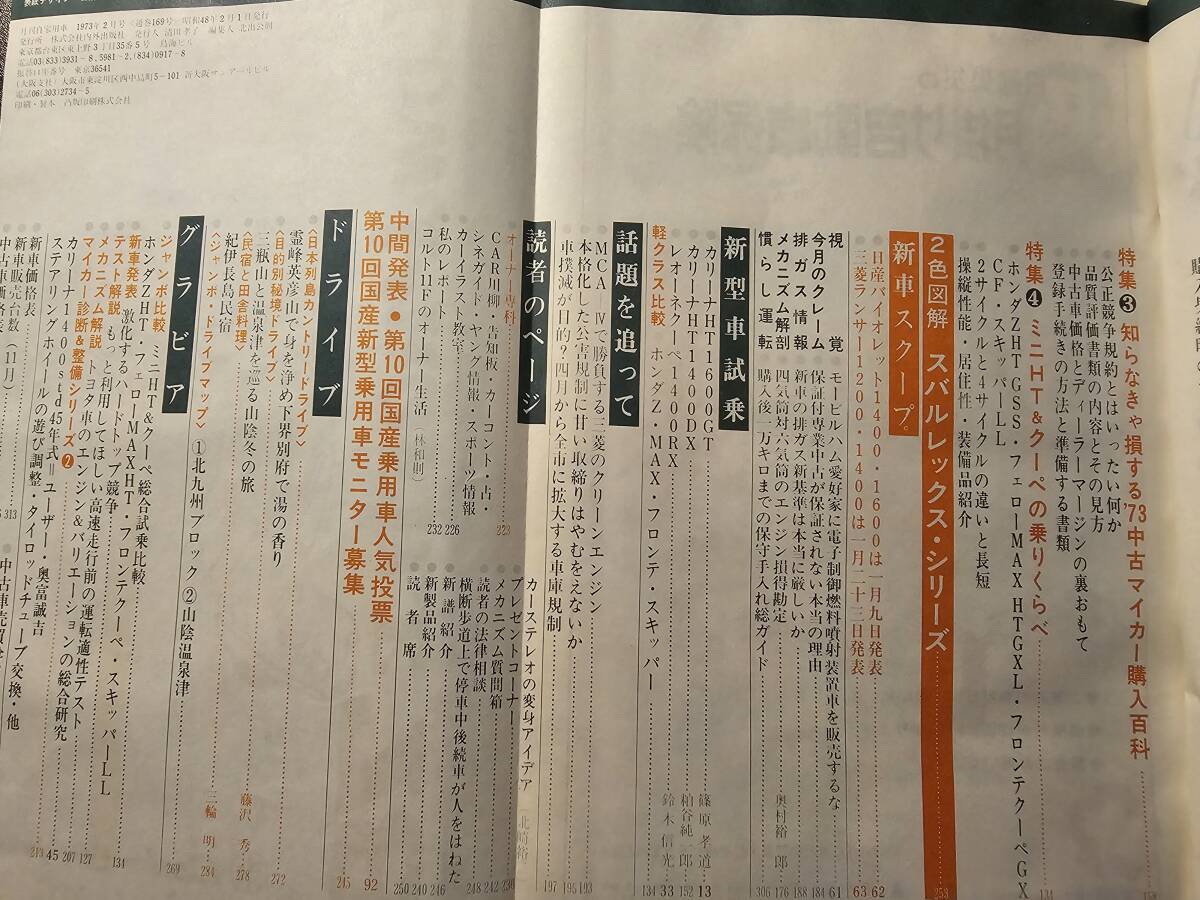 月刊自家用車 1973年2月号〈通巻169号〉昭和48年2月1日発行
発行所 株式会社内外出版社 発行人 清田孝子 編集人 北出公則
東京都台東区東上野3丁目35番5号 鳥海ビル
電話03(833)3931-8、5981-2、(834)0917-8
振替口座番号 東京36541
(大阪支社)大阪市東淀川区西中島町5-101
電話06(303)2734-5
印刷・製本 凸版印刷株式会社
特集❸ 知らなきゃ損する'73中古マイカー購入百科
公正競争規約とはいったい何か
品質評価書類の内容とその見方
中古車価格とディーラーマージンの裏おもて
登録手続きの方法と準備する書類
特集❹ ミニHT&クーペの乗りくらべ 134
ホンダZHT GSS・フェローMAX HTGXL・フロンテクーペGX
CF・スキッパーLL
2サイクルと4サイクルの違いと長短
操縦性能・居住性・装備品紹介
2色図解 スバルレックス・シリーズ 253
新車スクープ。
日産バイオレット1400・1600は一月九日発表 62
三菱ランサー1200・1400は一月二十三日発表 63
視覚 モービルハム愛好家に電子制御燃料噴射装置車を販売するな 61
今月のクレーム 保証付専業中古が保証されない本当の理由 184
排ガス情報 新車の排ガス新基準は本当に厳しいか 188
メカニズム解剖 四気筒対六気筒のエンジン損得勘定 奥村裕一郎 176
慣らし運転 購入後一万キロまでの保守手入れ総ガイド 306
新型車試乗
カリーナHT1600GT 篠原孝道 13
カリーナHT1400DX 粕谷純一郎 152
レオーネクーペ1400RX 鈴木信光 33
軽クラス比較 ホンダZ・MAX・フロンテ・スキッパー 134
話題を追って
MCA-Ⅳで勝負する三菱のクリーンエンジン 193
本格化した公害規制に甘い取締りはやむをえないか 195
車撲滅が目的?四月から全市に拡大する車庫規制 197
読者のページ
オーナー専科 223
CAR川柳・告知板・カーコント・占・
シネガイド・ヤング情報・スポーツ情報
カーイラスト教室
私のレポート 226
コルト11Fのオーナー生活 (林和則) 232
カーステレオの変身アイデア
プレゼントコーナー 230
メカニズム質問箱 242
読者の法律相談 248
横断歩道上で停車中後続車が人をはねた
新譜紹介 246
新製品紹介 240
読者席 250
中間発表●第10回国産乗用車人気投票 92
第10回国産新型乗用車モニター募集 215
ドライブ
〈日本列島カントリードライブ〉
霊峰英彦山で身を浄め下界別府で湯の香り 272
〈目的別秘境ドライブ〉
三瓶山と温泉津を巡る山陰冬の旅 藤沢秀 278
〈民宿と田舎料理〉
紀伊長島民宿 三輪明 284
〈ジャンボ・ドライブマップ〉 ①北九州ブロック ②山陰温泉津 269
グラビア
ジャンボ比較 ミニHT&クーペ総合試乗比較
ホンダZHT・フェローMAXHT・フロンテクーペ・スキッパーLL
新車発表 激化するハードトップ競争 134
テスト解説 もっと利用してほしい高速走行前の運転適性テスト 127
メカニズム解説 トヨタ車のエンジン&バリエーションの総合研究 207
マイカー診断&整備シリーズ❷
カリーナ1400std45年式=ユーザー・奥富誠吉 45
ステアリングホイールの遊び調整・タイロッドチューブ交換・他 213
新車価格表
新車販売台数(11月) 313